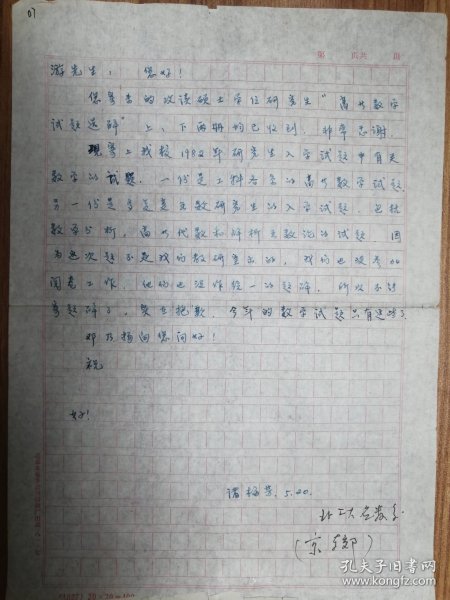 第 页共 页
游先生： 您好！
您寄来的攻读硕士学位研究生“高等数学
试题选解”上、下两册均已收到，非常感谢。
现寄上我校1982年研究生入学试题中有关
数学的试题，一份是工科各系的高等数学试题
另一份是专业是应数研究生的入学试题，包括
数学分析，高等代数和解析函数论的试题，因
为这次题不是我们教研室出的，我们也没参加
阅卷工作，他们也没作统一的题解，所以不能
寄题解了，实在抱歉，今年的数学试题只有这些了
邓乃扬问您问好！
祝
好！
5.20.
北工大应数系
（京郊）
孔夫子旧书网